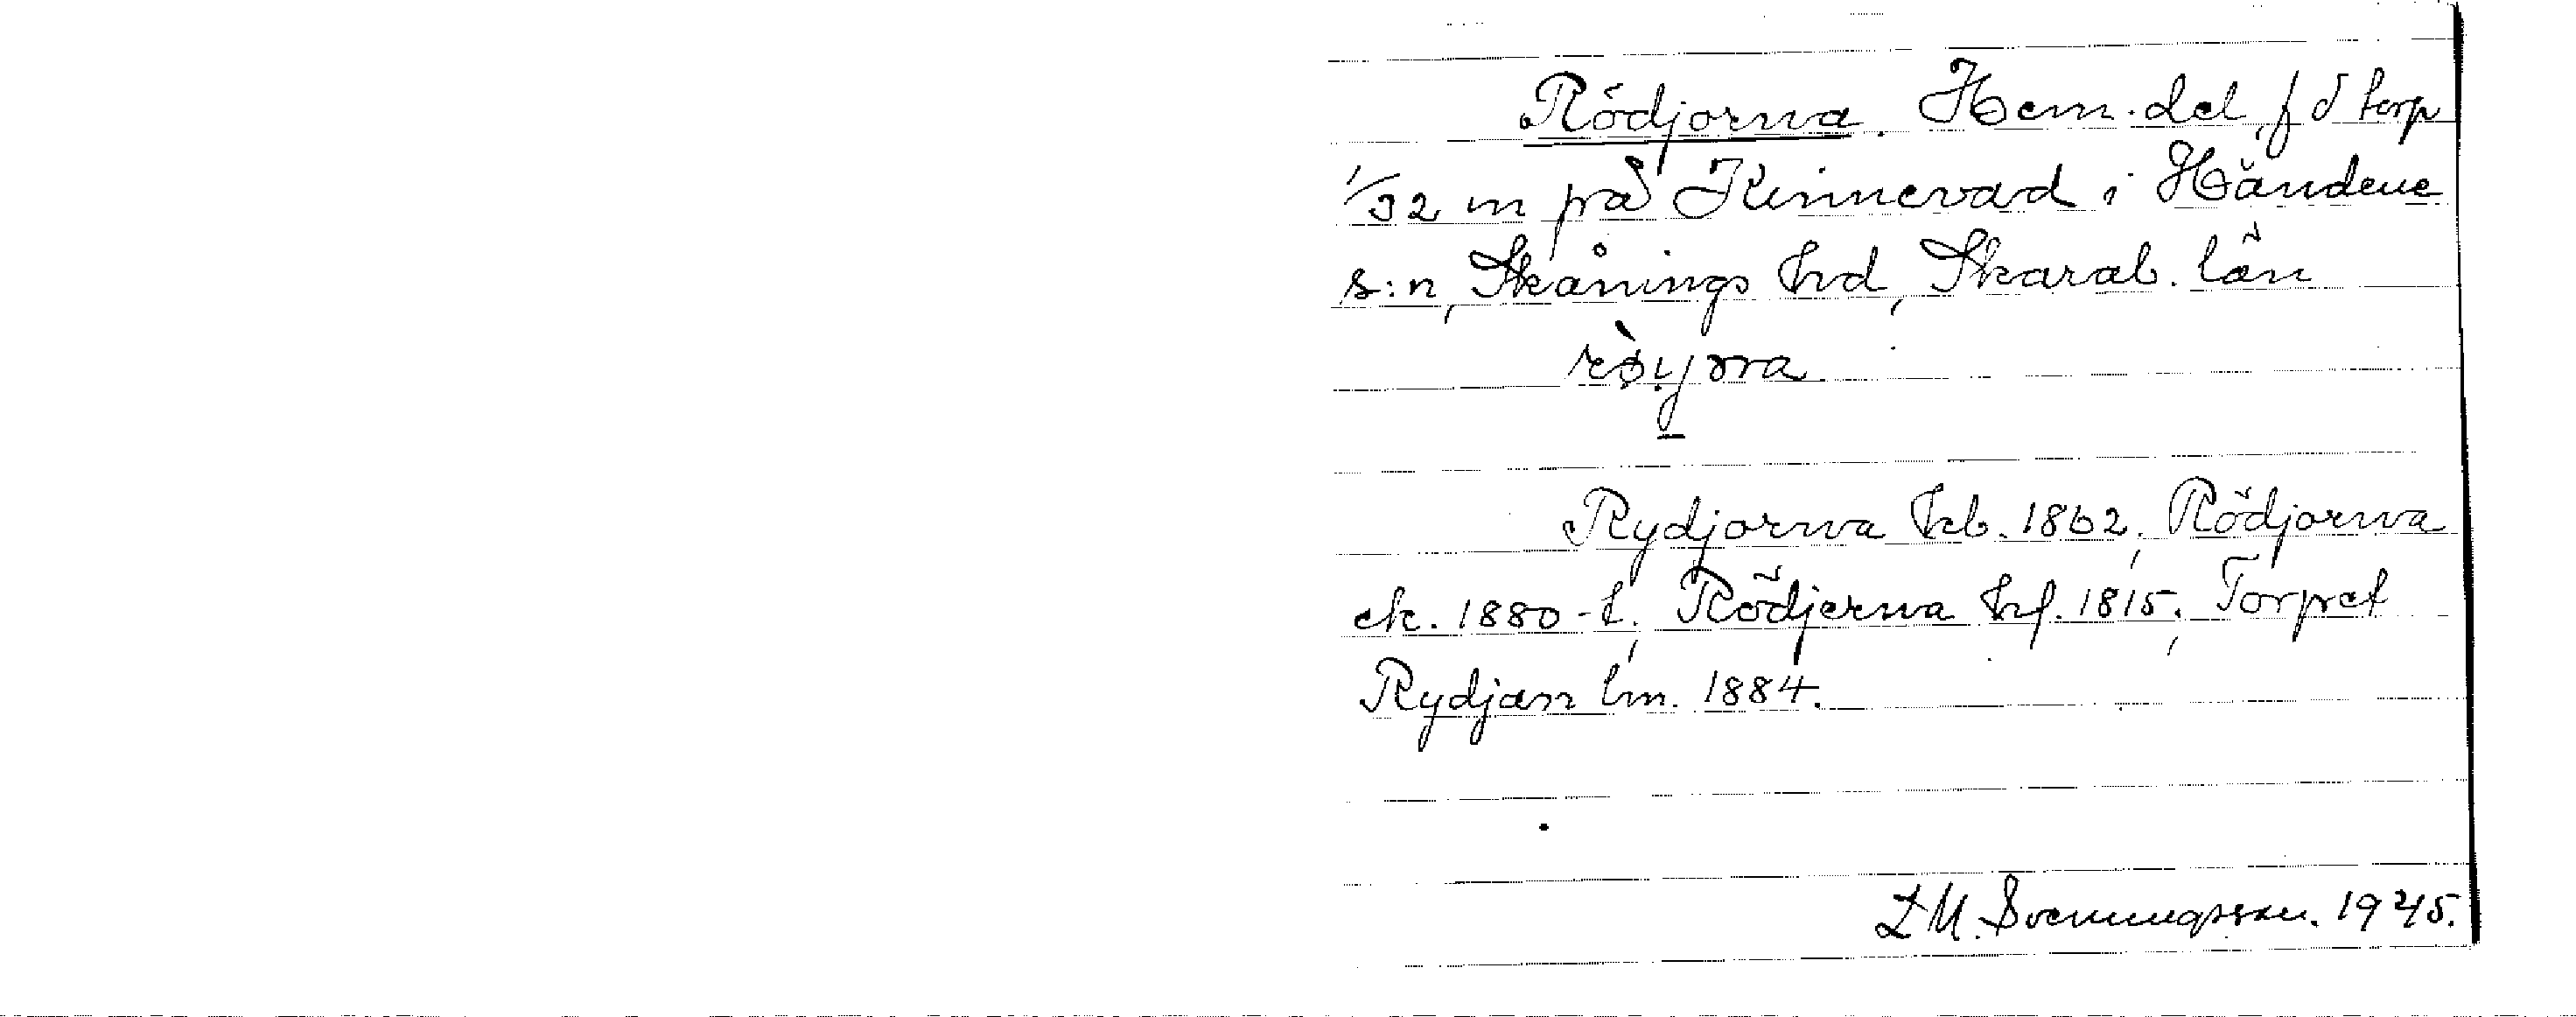 Rödjorna. Hem.del, f d torp
1/32 m på Kinnevad i Händene
s:n, Skånings hd, Skarab. län
Rydjorna kb. 1862; Rödjorna
ek. 1880-t; Rödjerna hf. 1815; Torpet
Rydjan lm. 1884.
L M. Svenungsson. 1945.